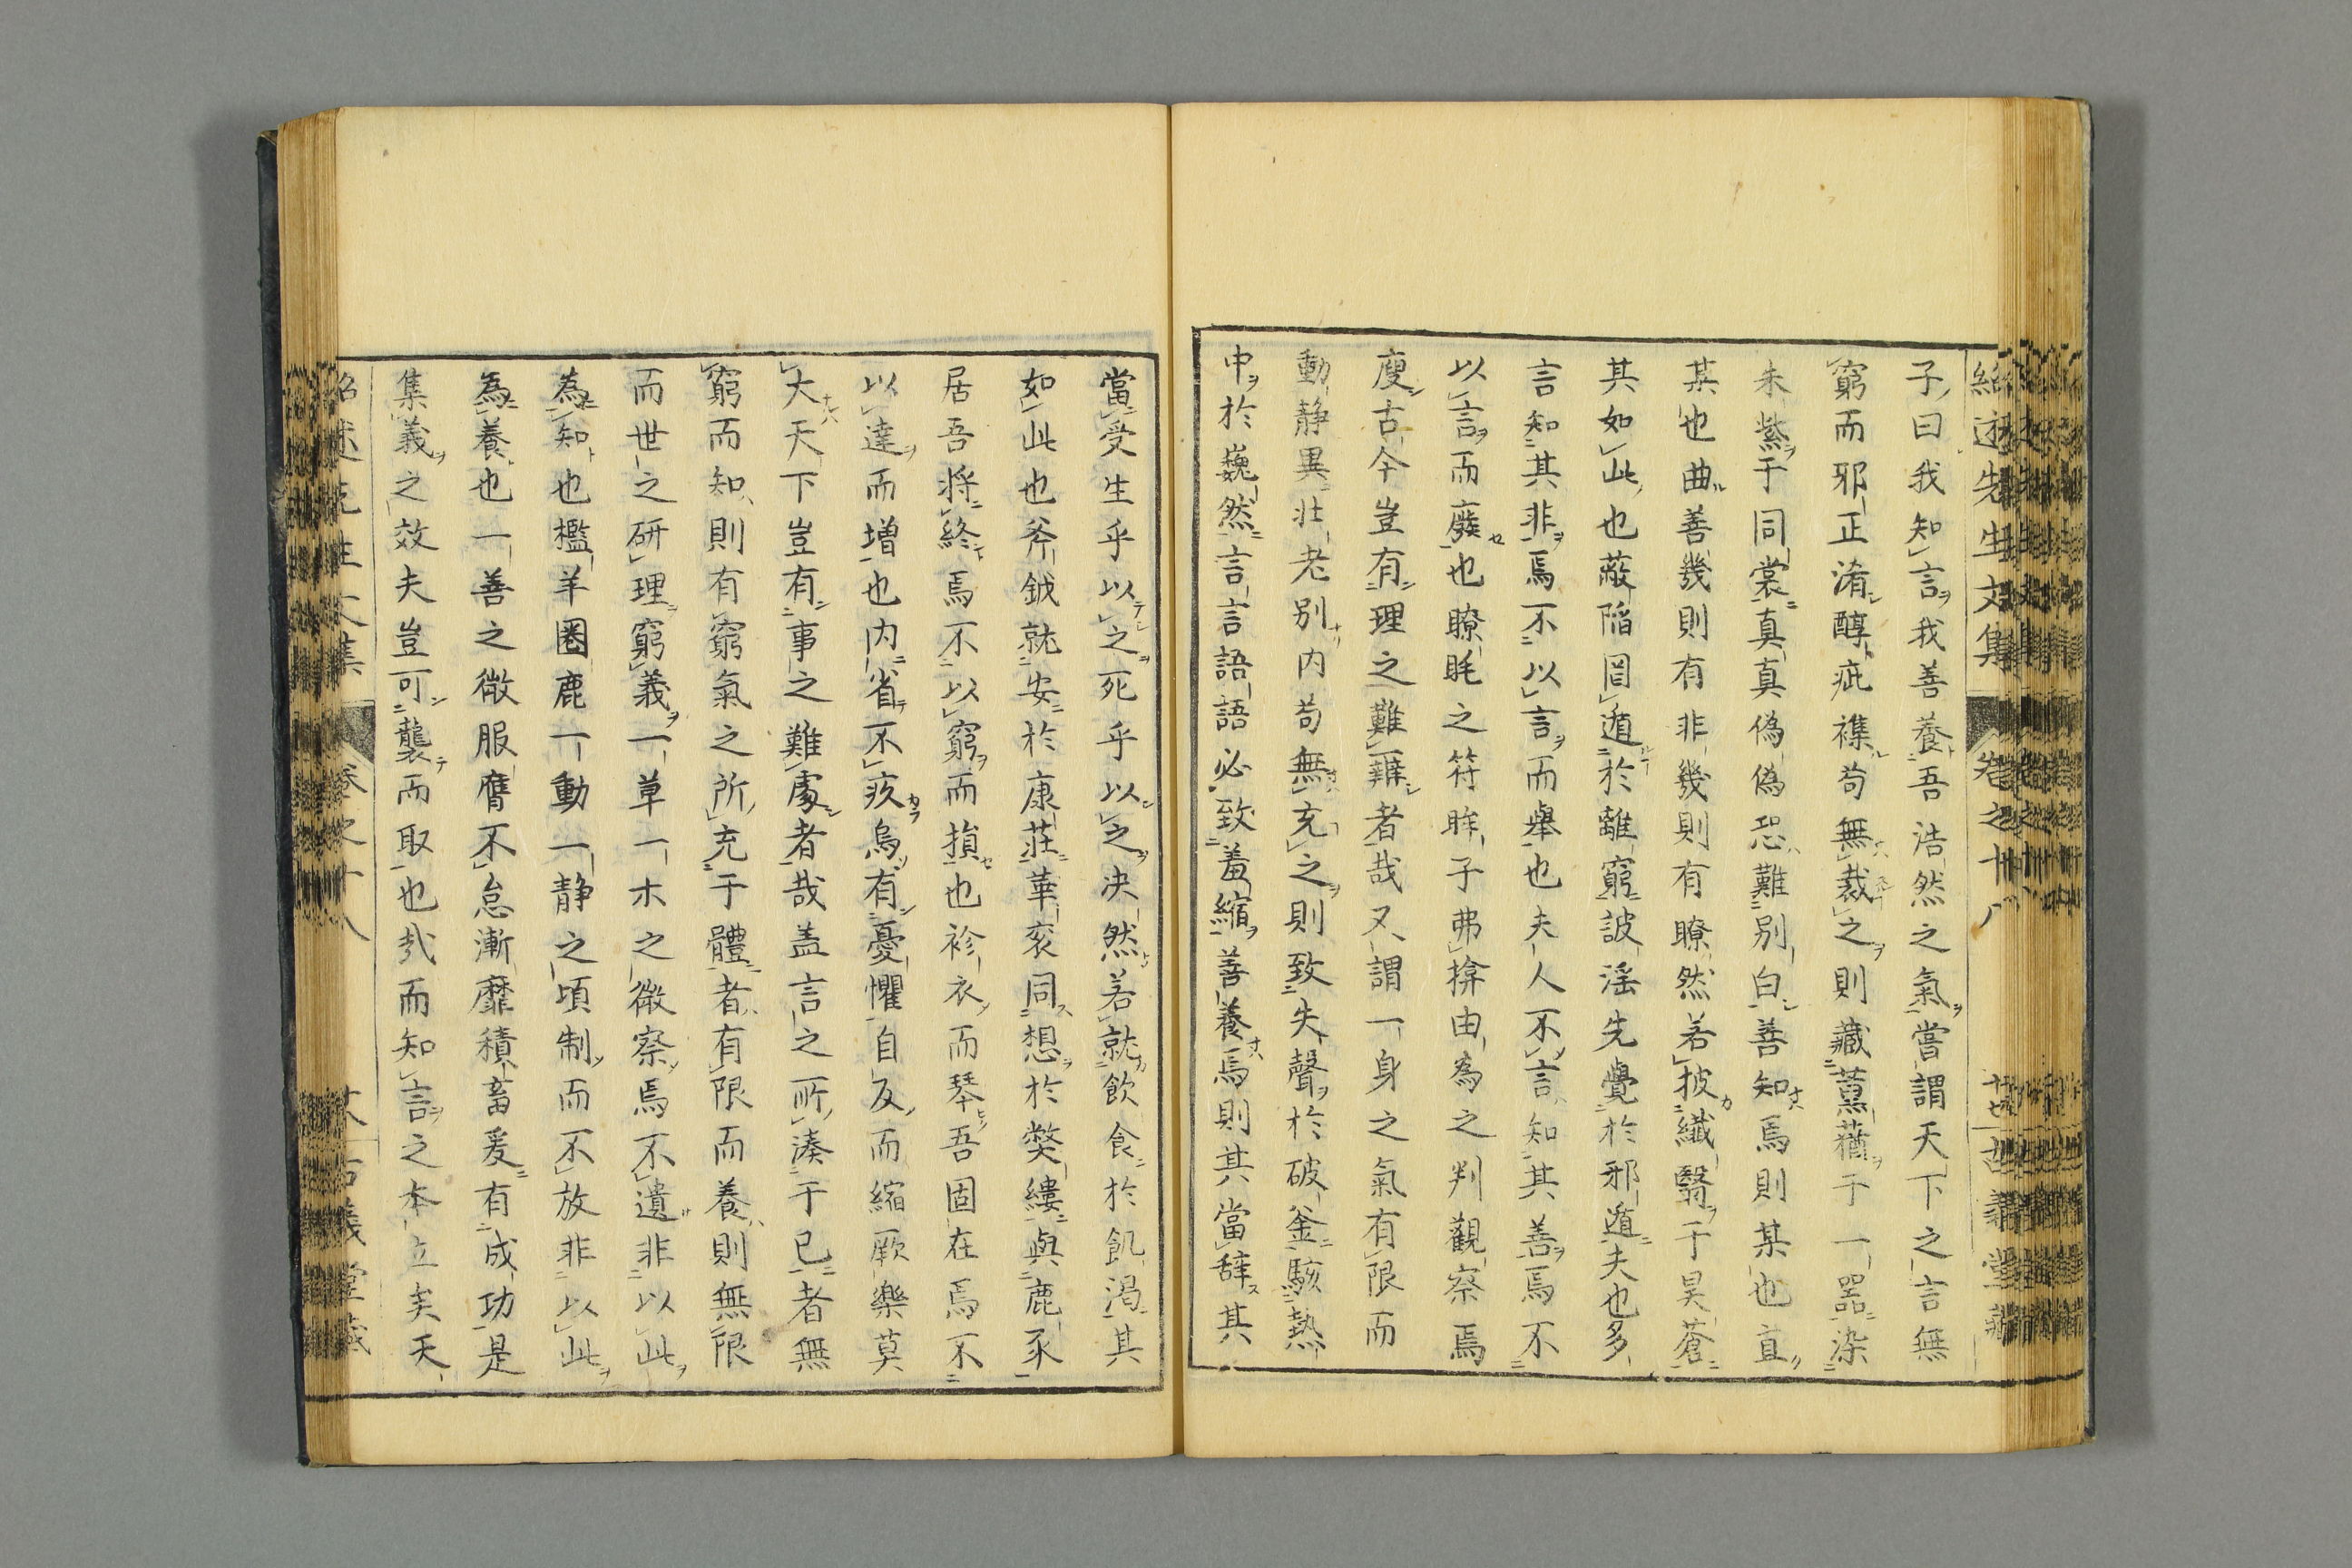 紹述先生文集 卷之十八 十七 古義堂藏
子曰我知言我善養吾浩然之氣嘗謂天下之言無
窮而邪正淆醇疵襍苟無裁之則藏薰蕕于一器染
朱紫于同裳真真偽偽恐難別白善知焉則某也直
某也曲善幾則有非幾則有瞭然若披纖翳于昊蒼
其如此也蔽陷罔遁於離窮詖淫先覺於邪遁夫也多
言知其非焉不以言而舉也夫人不言知其善焉不
以言而廢也瞭眊之符眸子弗揜由為之判觀察焉
廋古今豈有理之難辨者哉又謂一身之氣有限而
動静異壯老別内苟無充之則致失聲於破釜駭熱
中於巍然言言語語必致羞縮善養焉則其當辞其
當受生乎以之死乎以之决然若就飲食於飢渴其
如此也斧鉞就安於康莊華衮同想於獘縷與鹿豕
居吾將終焉不以窮而損也袗衣而琴吾固在焉不
以達而増也内省不疚烏有憂懼自反而縮厥樂莫
大天下豈有事之難處者哉盖言之所湊于已者無
窮而知則有窮氣之所充于體者有限而養則無限
而世之研理窮義一草一木之微察焉不遺非以此
為知也檻羊圈鹿一動一静之頃制而不放非以此
為養也一善之微服膺不怠漸靡積畜爰有成功是
集義之效夫豈可襲而取也㢤而知言之本立矣天
紹述先生文集 卷之十八 古義堂藏